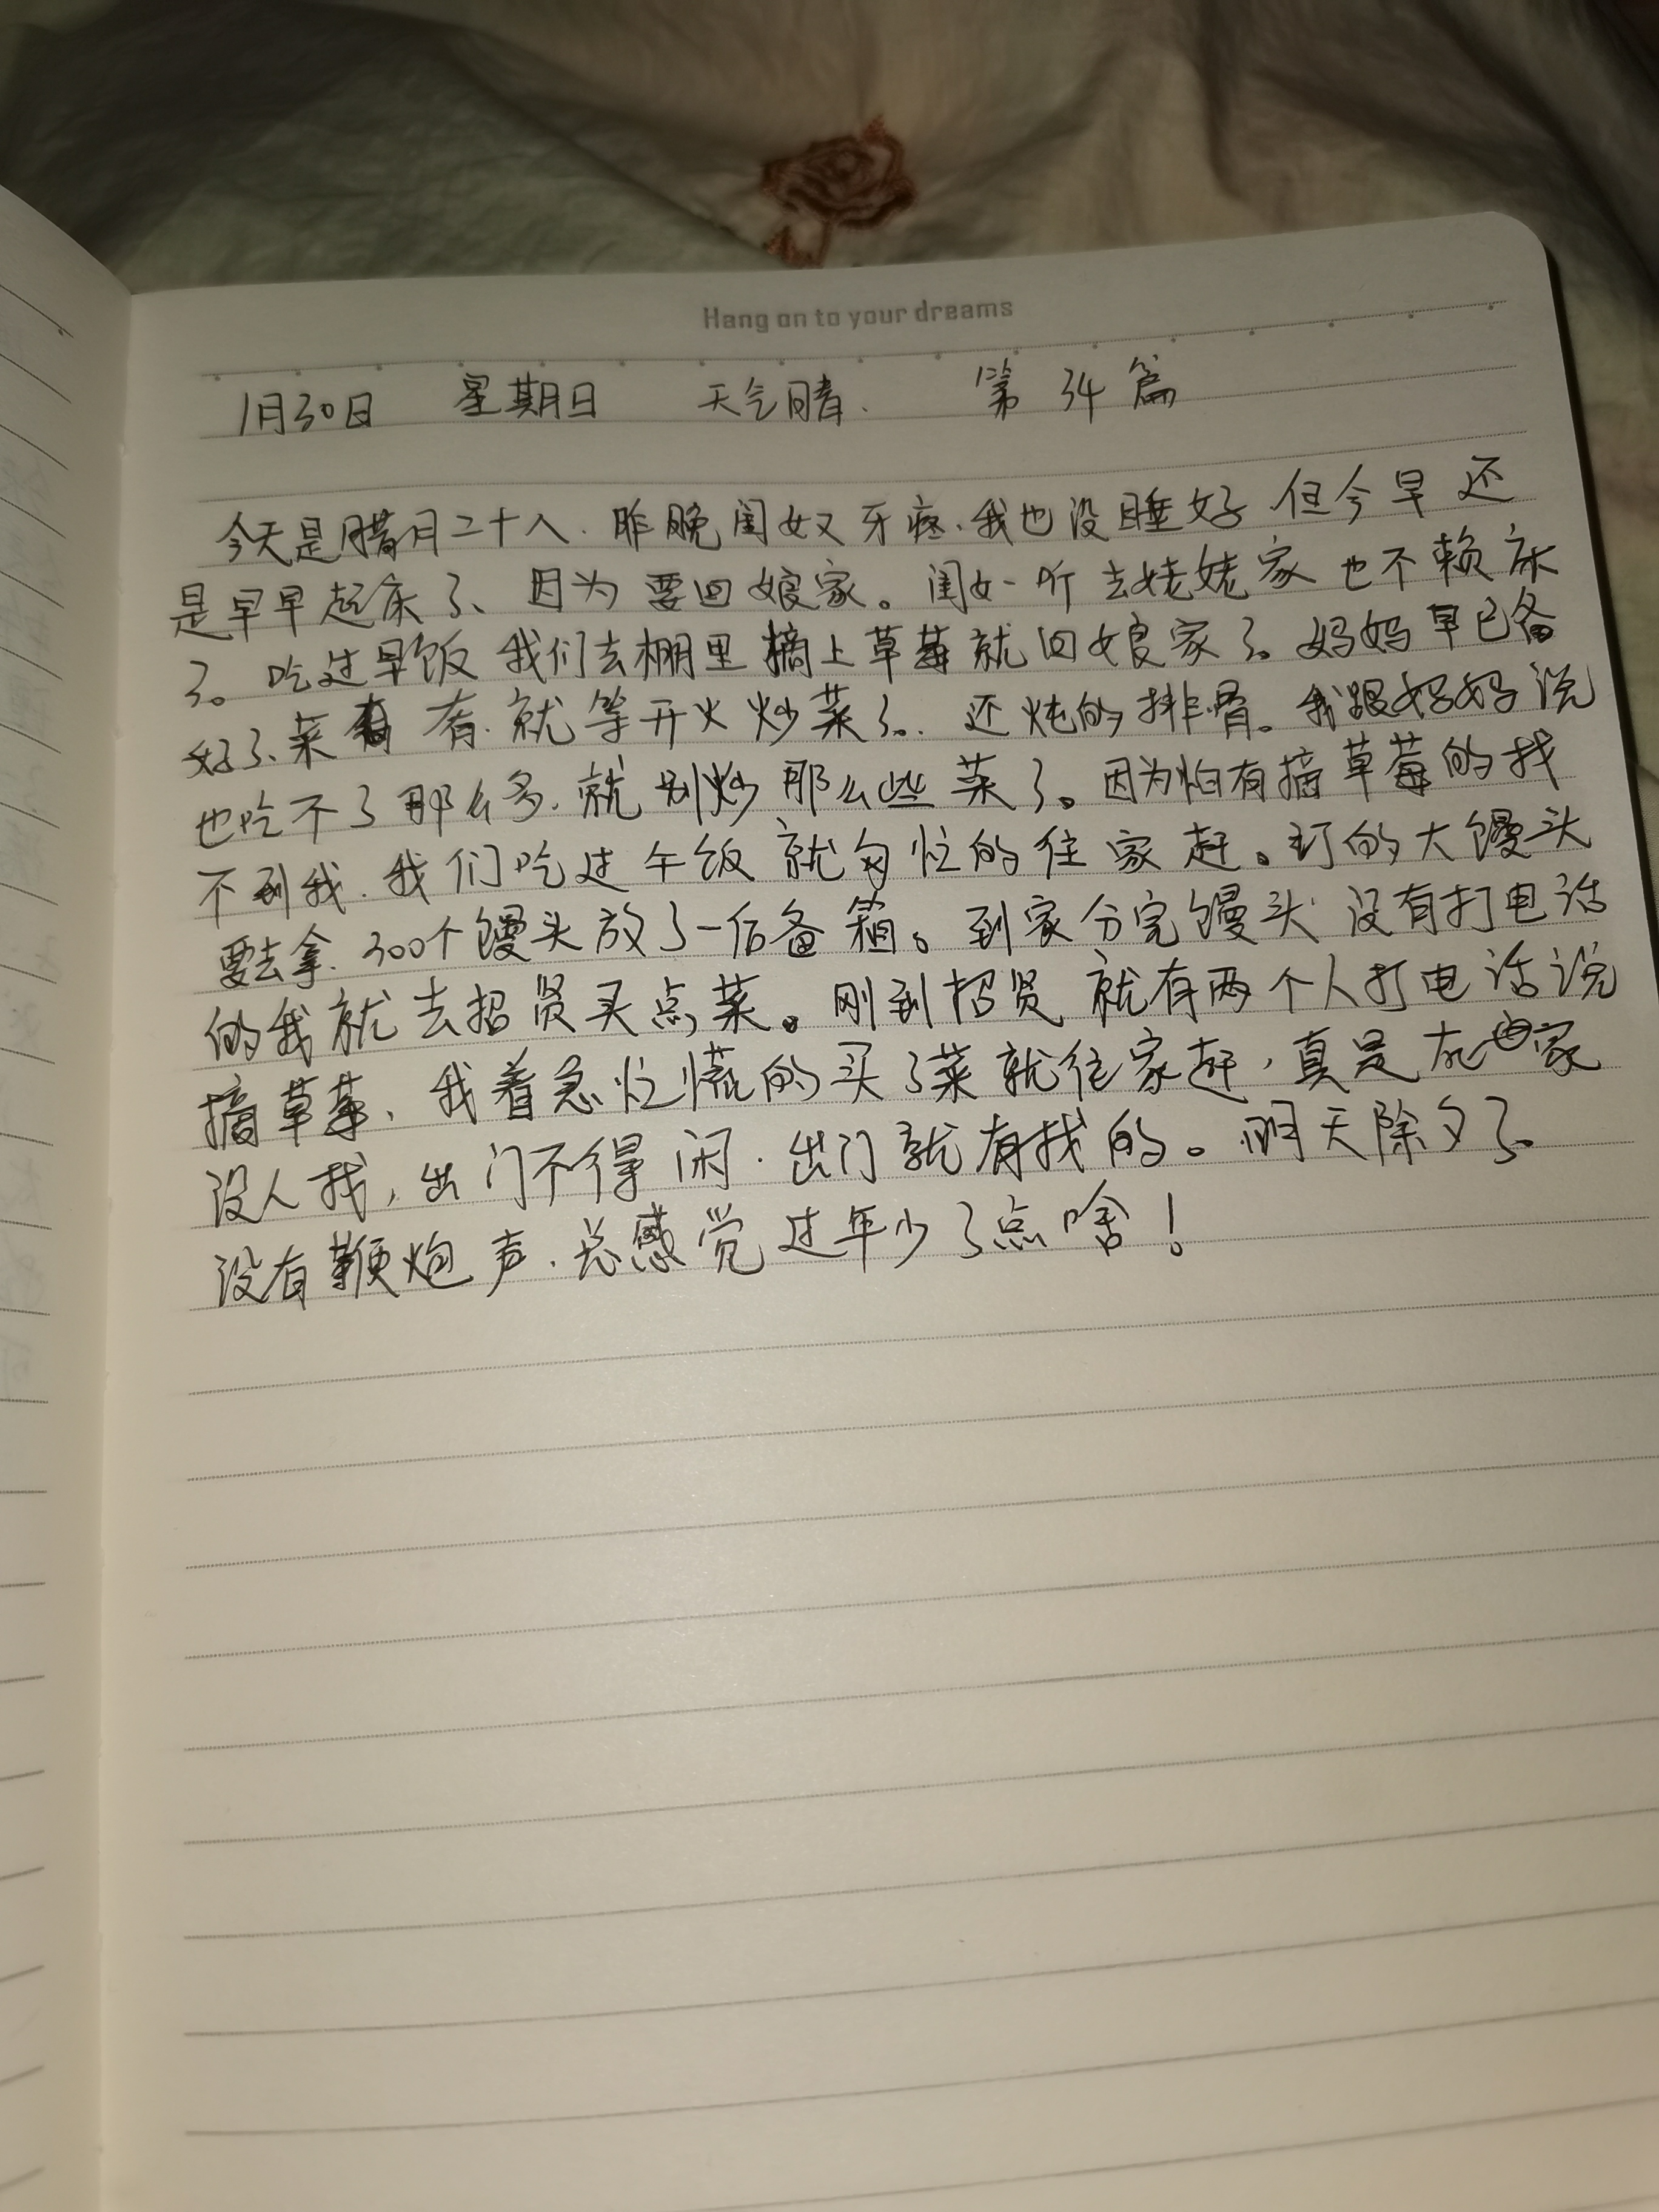 Hang on to your dreams
1月30日 星期日 天气晴. 第34篇
今天是腊月二十八.昨晚闺女又牙疼.我也没睡好 但今早还
是早早起床了、因为要回娘家。闺女一听去姥姥家也不赖床
了。吃过早饭我们去棚里摘上草莓就回娘家了。妈妈早已备
好了、菜 有.就等开火炒菜了.还炖的排骨。我跟妈妈说
也吃不了那么多.就别炒那么些菜了。因为怕有摘草莓的找
不到我.我们吃过午饭就匆忙的往家赶。订的大馒头
要去拿.300个馒头放了一后备箱。到家分完馒头 没有打电话
的我就去招贤买点菜。刚到招贤就有两个人打电话说
摘草莓、我着急忙慌的买了菜就往家赶,真是在家
没人找,出门不得闲.出门就有找的。明天除夕了、
没有鞭炮声.总感觉过年少了点啥!